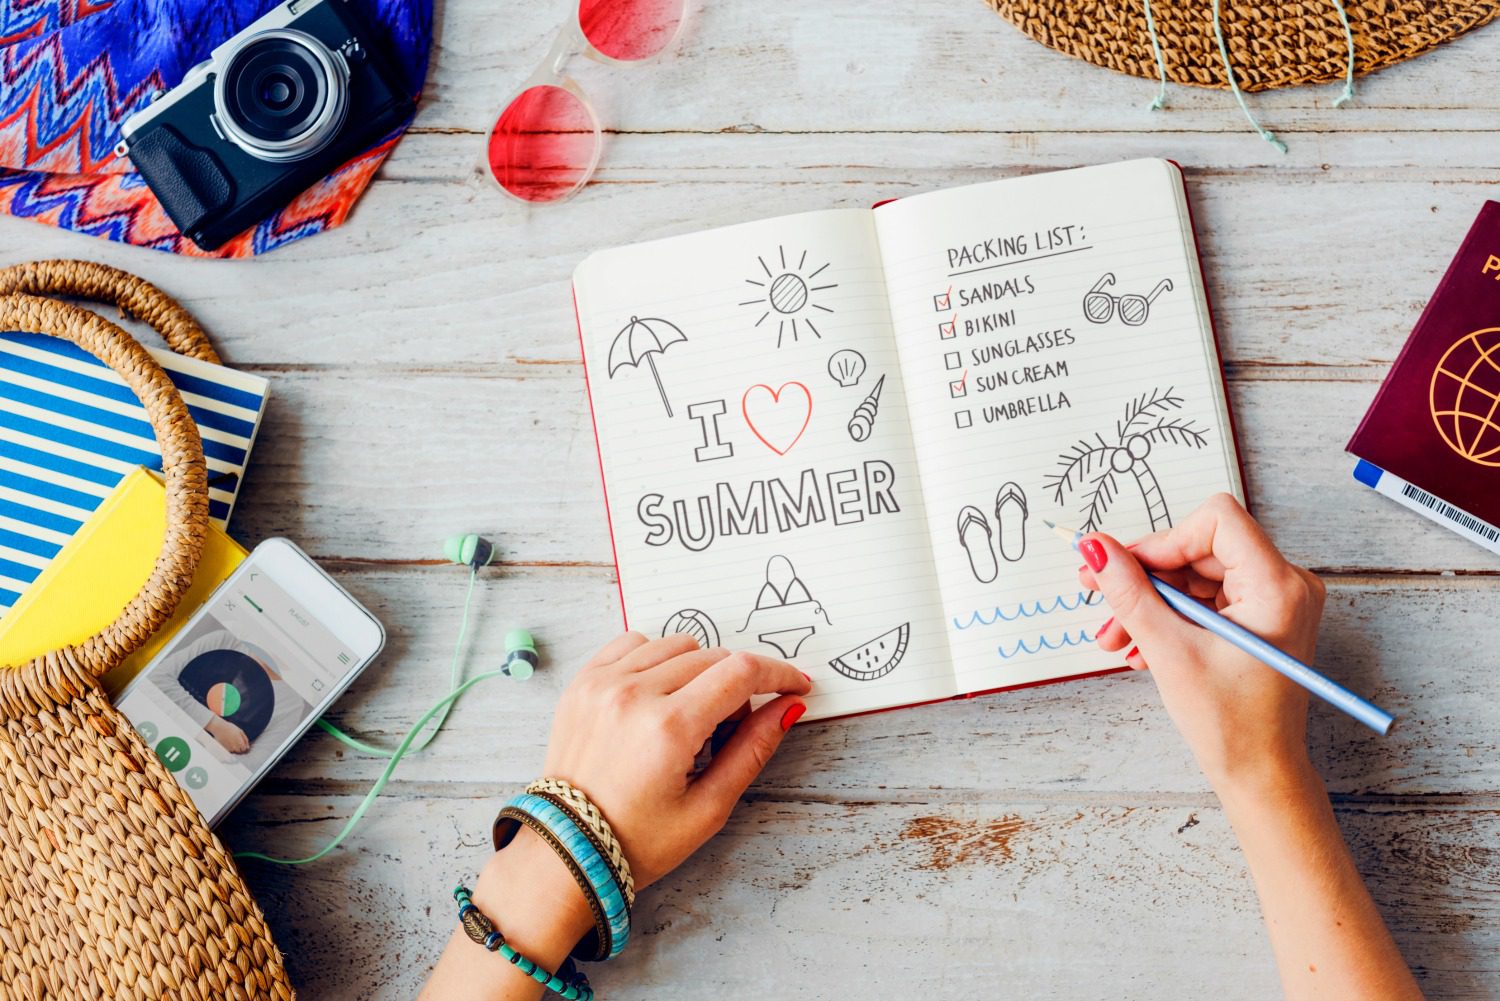 I
SUMMER
PACKING LIST:
SANDALS
BIKINI
SUNGLASSES
SUN CREAM
UMBRELLA
PLAYLIST